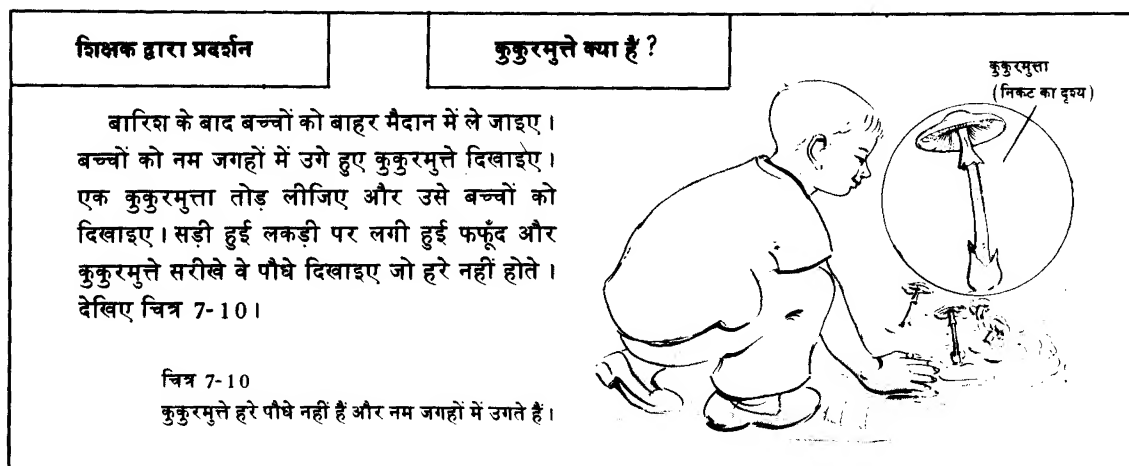 शिक्षक द्वारा प्रदर्शन
कुकुरमुत्ते क्या हैं ?
कुकुरमुत्ता
(निकट का दृश्य)
बारिश के बाद बच्चों को बाहर मैदान में ले जाइए।
बच्चों को नम जगहों में उगे हुए कुकुरमुत्ते दिखाइए।
एक कुकुरमुत्ता तोड़ लीजिए और उसे बच्चों को
दिखाइए। सड़ी हुई लकड़ी पर लगी हुई फफूँद और
कुकुरमुत्ते सरीखे वे पौधे दिखाइए जो हरे नहीं होते।
देखिए चित्र 7-10।
चित्र 7-10
कुकुरमुत्ते हरे पौधे नहीं हैं और नम जगहों में उगते हैं।